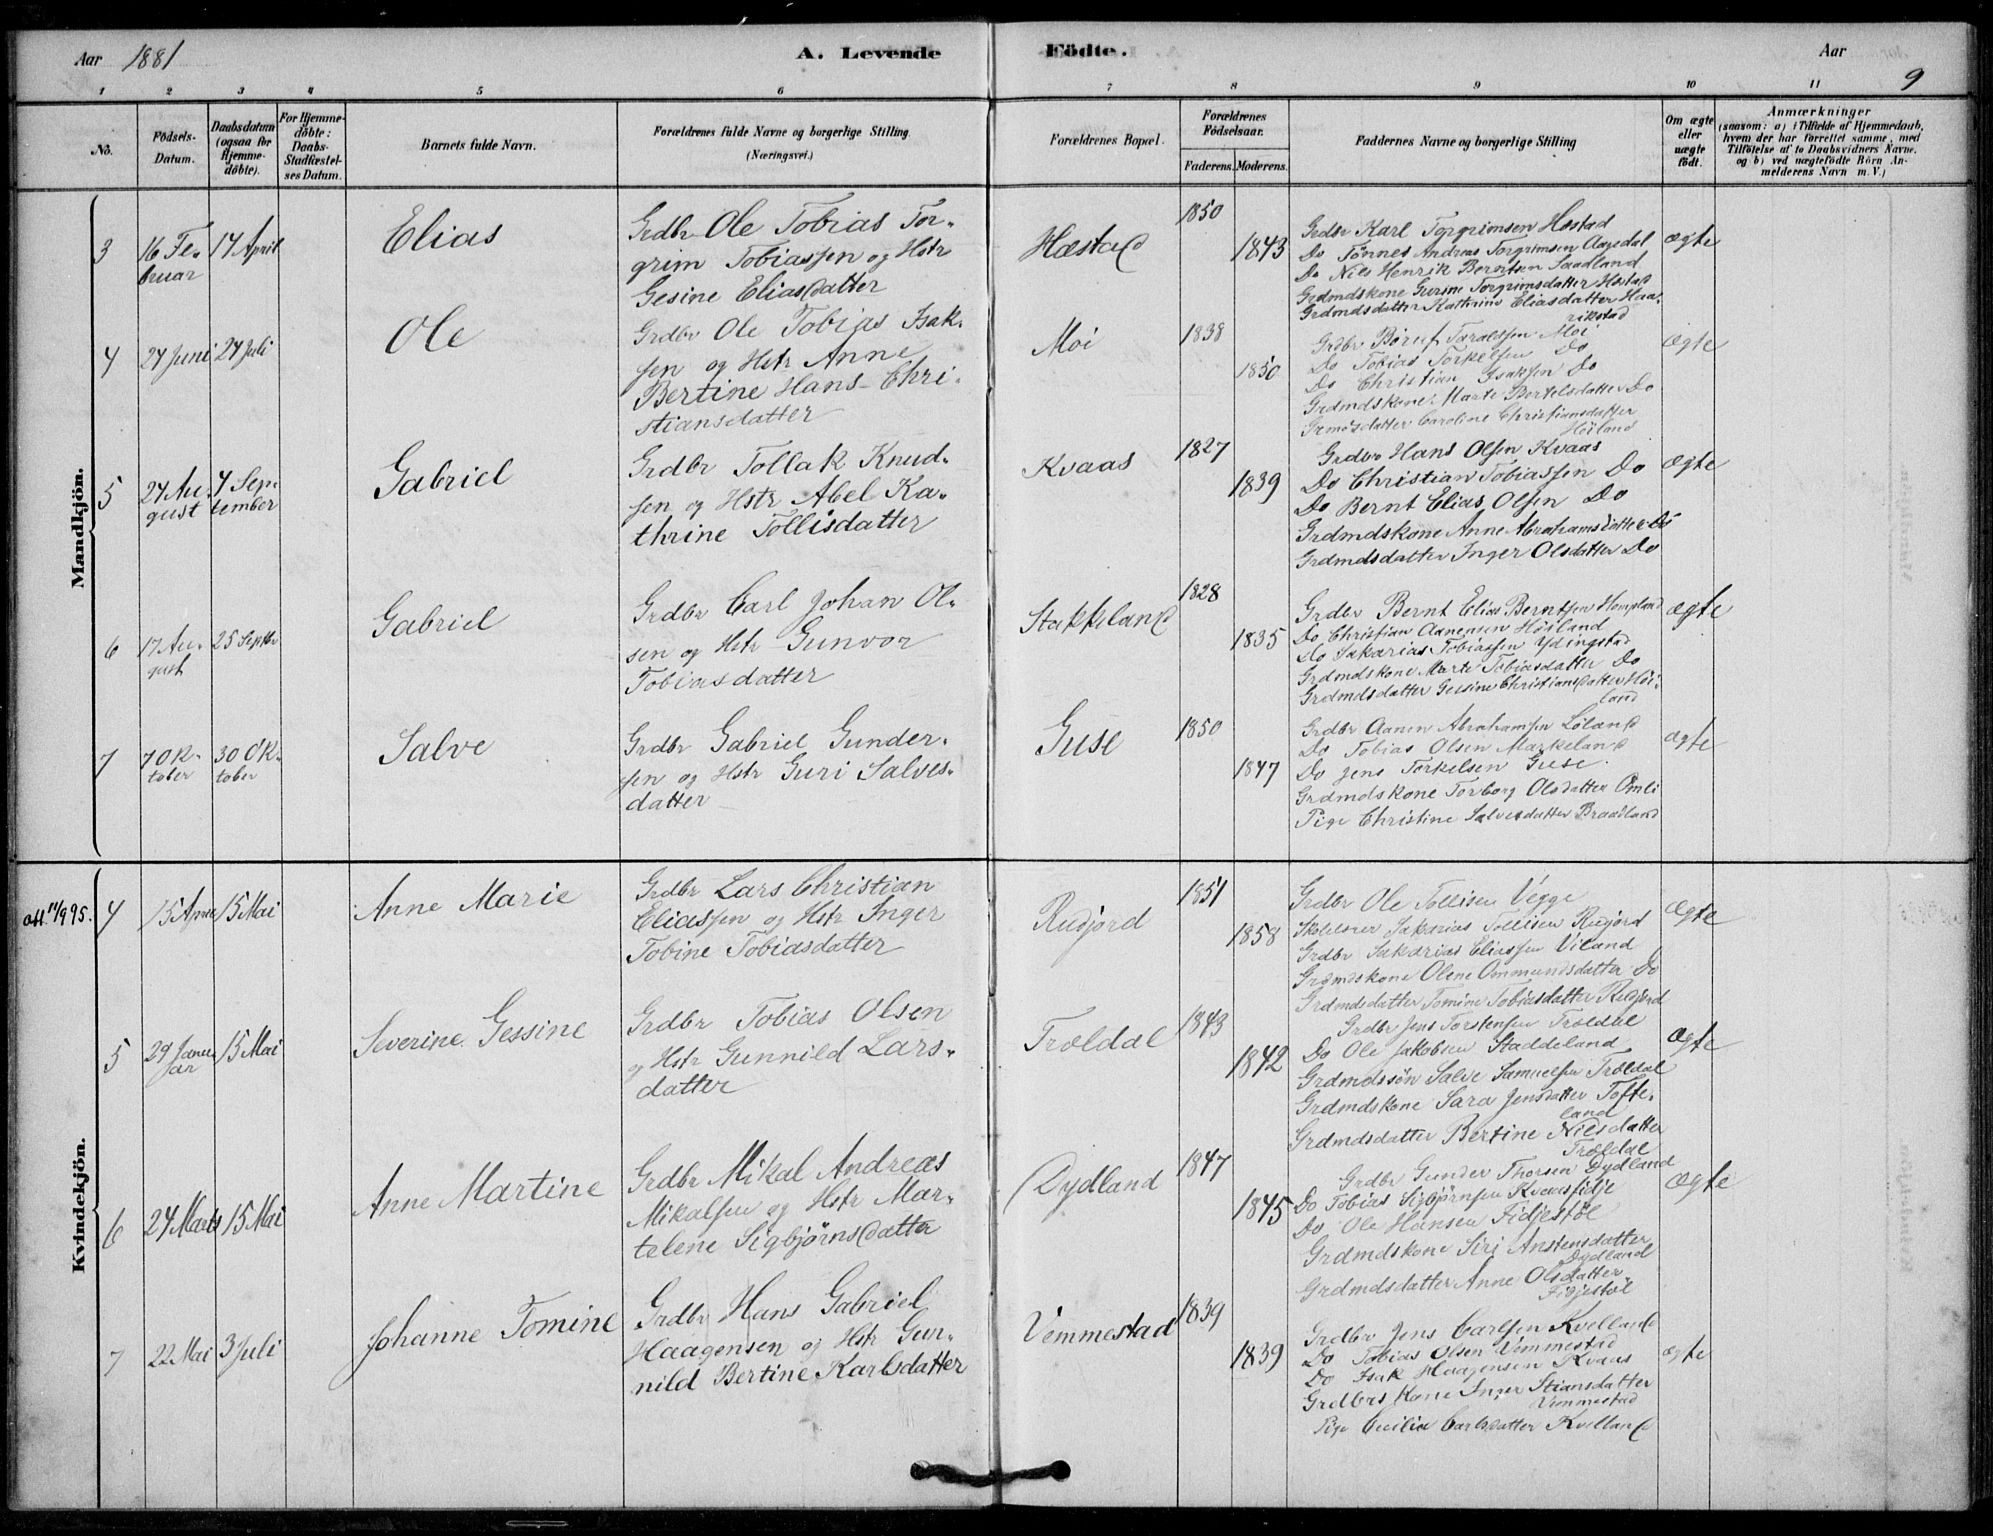 Aar 1881 A. Levende Födte. Aar
9
1 2 3 4 5 6 7 8 9 10 11
No.
Födsels-Datum.
Daabsdatum (ogsaa för Hjemme-döbte).
For Hjemme-döbte: Daabs-Stadfæstel-ses Datum.
Barnets fulde Navn.
Forældrenes fulde Navne og borgerlige Stilling
(Næringsvei.)
Forældrenes Bopæl.
Forældrenes Födselsaar.
Faderens. Moderens.
Faddernes Navne og borgerlige Stilling
Om ægte eller uægte födt.
Anmærkninger
(saasom: a) i Tilfælde af Hjemmedaab,
hvem der har forrettet samme, med
Tilföielse af to Daabsvidners Navne,
og b) ved uægtefödte Börn An-
melderens Navn m. V.)
Mandkjön.
3 16 Fe-
bruar
17 April
Elias
Grdbr Ole Tobias Tor-
grim Tobiassen og Hstr
Gesine Eliasdatter
Hæstad
1850
1843
Grdbr Karl Torgrimsen Hæstad
Do Tønnes Andreas Torgrimsen Aagedal
Do Nils Henrik Berntsen Saadland
Grdmdskone Gurine Torgrimsdatter Hæstad
Grdmdsdatter Kathrine Eliasdatter Haa-
rikstad
ægte
4 27 Juni 24 Juli
Ole
Grdbr Ole Tobias Isak-
sen og Hstr Anne
Bertine Hans Chri-
stiansdatter
Moi
1838
1850
Grdbr Børuf Taraldsen Moi
Do Tobias Torkelsen Do
Do Christian Isaksen Do
Grdmdskone Marte Bertelsdatter Do
Grmdsdatter Caroline Christiansdatter
Høiland
ægte
5 27 Au-
gust
4 Sep-
tember
Gabriel
Grdbr Tollak Knud-
sen og Hstr Abel Ka-
thrine Tollisdatter
Kvaas
1827
1839
Grdbr Hans Olsen Kvaas
Do Christian Tobiassen Do
Do Bernt Elias Olsen Do
Grdmdskone Anne Abrahamsdatter Do
Grdmdsdatter Inger Olsdatter Do
ægte
6 17 Au-
gust
25 Septbr
Gabriel
Grdbr Carl Johan Ol-
sen og Hstr Gunvor
Tobiasdatter
Stakkeland
1828
1835
Grdbr Bernt Elias Berntsen Hompland
Do Christian Aanensen Høiland
Do Sakarias Tobiassen Ydingstad
Grdmdskone Marte Tobiasdatter Do
Grdmdsdatter Gessine Christiansdatter Høi-
land
ægte
7 7 Ok-
tober
30 Ok-
tober
Salve
Grdbr Gabriel Gunder-
sen og Hstr Guri Salves-
datter
Guse
1850
1847
Grdbr Aanen Abrahamsen Løland
Do Tobias Olsen Markeland
Do Jens Torkelsen Guse.
Grdmdskone Torborg Olsdatter Omli
Pige Christine Salvesdatter Braadland
ægte
Kvindekjön.
att 11/9 95. 4 15 April 15 Mai
Anne Marie
Grdbr Lars Christian
Eliassen og Hstr Inger
Tobine Tobiasdatter
Rudjord
1851
1858
Grdbr Ole Tollisen Vegge
Skolelærer Sakarias Tollisen Rudjord
Grdbr Sakarias Eliassen Viland
Grdmdskone Olene Ommundsdatter Do
Grdmdsdatter Tomine Tobiasdatter Rudjord
ægte
5 29 Janu-
ar
15 Mai
Severine Gessine
Grdbr Tobias Olsen
og Hstr Gunnild Lars-
datter
Trældal
1843
1842
Grdbr Jens Torstensen Trældal
Do Ole Jakobsen Staddeland
Grdmdssøn Salve Samuelsen Trældal
Grdmdskone Sara Jensdatter Tofte-
land
Grdmdsdatter Bertine Nilsdatter
Trældal
ægte
6 24 Marts 15 Mai
Anne Martine
Grdbr Mikal Andreas
Mikalsen og Hstr Mar-
telene Sigbjørnsdatter
Dydland
1847
1845
Grdbr Gunder Thorsen Dydland
Do Tobias Sigbjørnsen Kvaasfidje
Do Ole Hansen Fidjestøl
Grdmdskone Siri Anstensdatter
Dydland
Grdmdsdatter Anne Olsdatter
Fidjestøl
ægte
7 22 Mai 3 Juli
Johanne Tomine
Grdbr Hans Gabriel
Haagensen og Hstr Gun-
nild Bertine Karlsdatter
Vemmestad
1839
1839
Grdbr Jens Carlsen Kvelland
Do Tobias Olsen Vemmestad
Do Isak Haagensen Kvaas
Grdbrs Kone Inger Stiansdatter
Vemmestad
Pige Cecilia Carlsdatter Kvelland
ægte